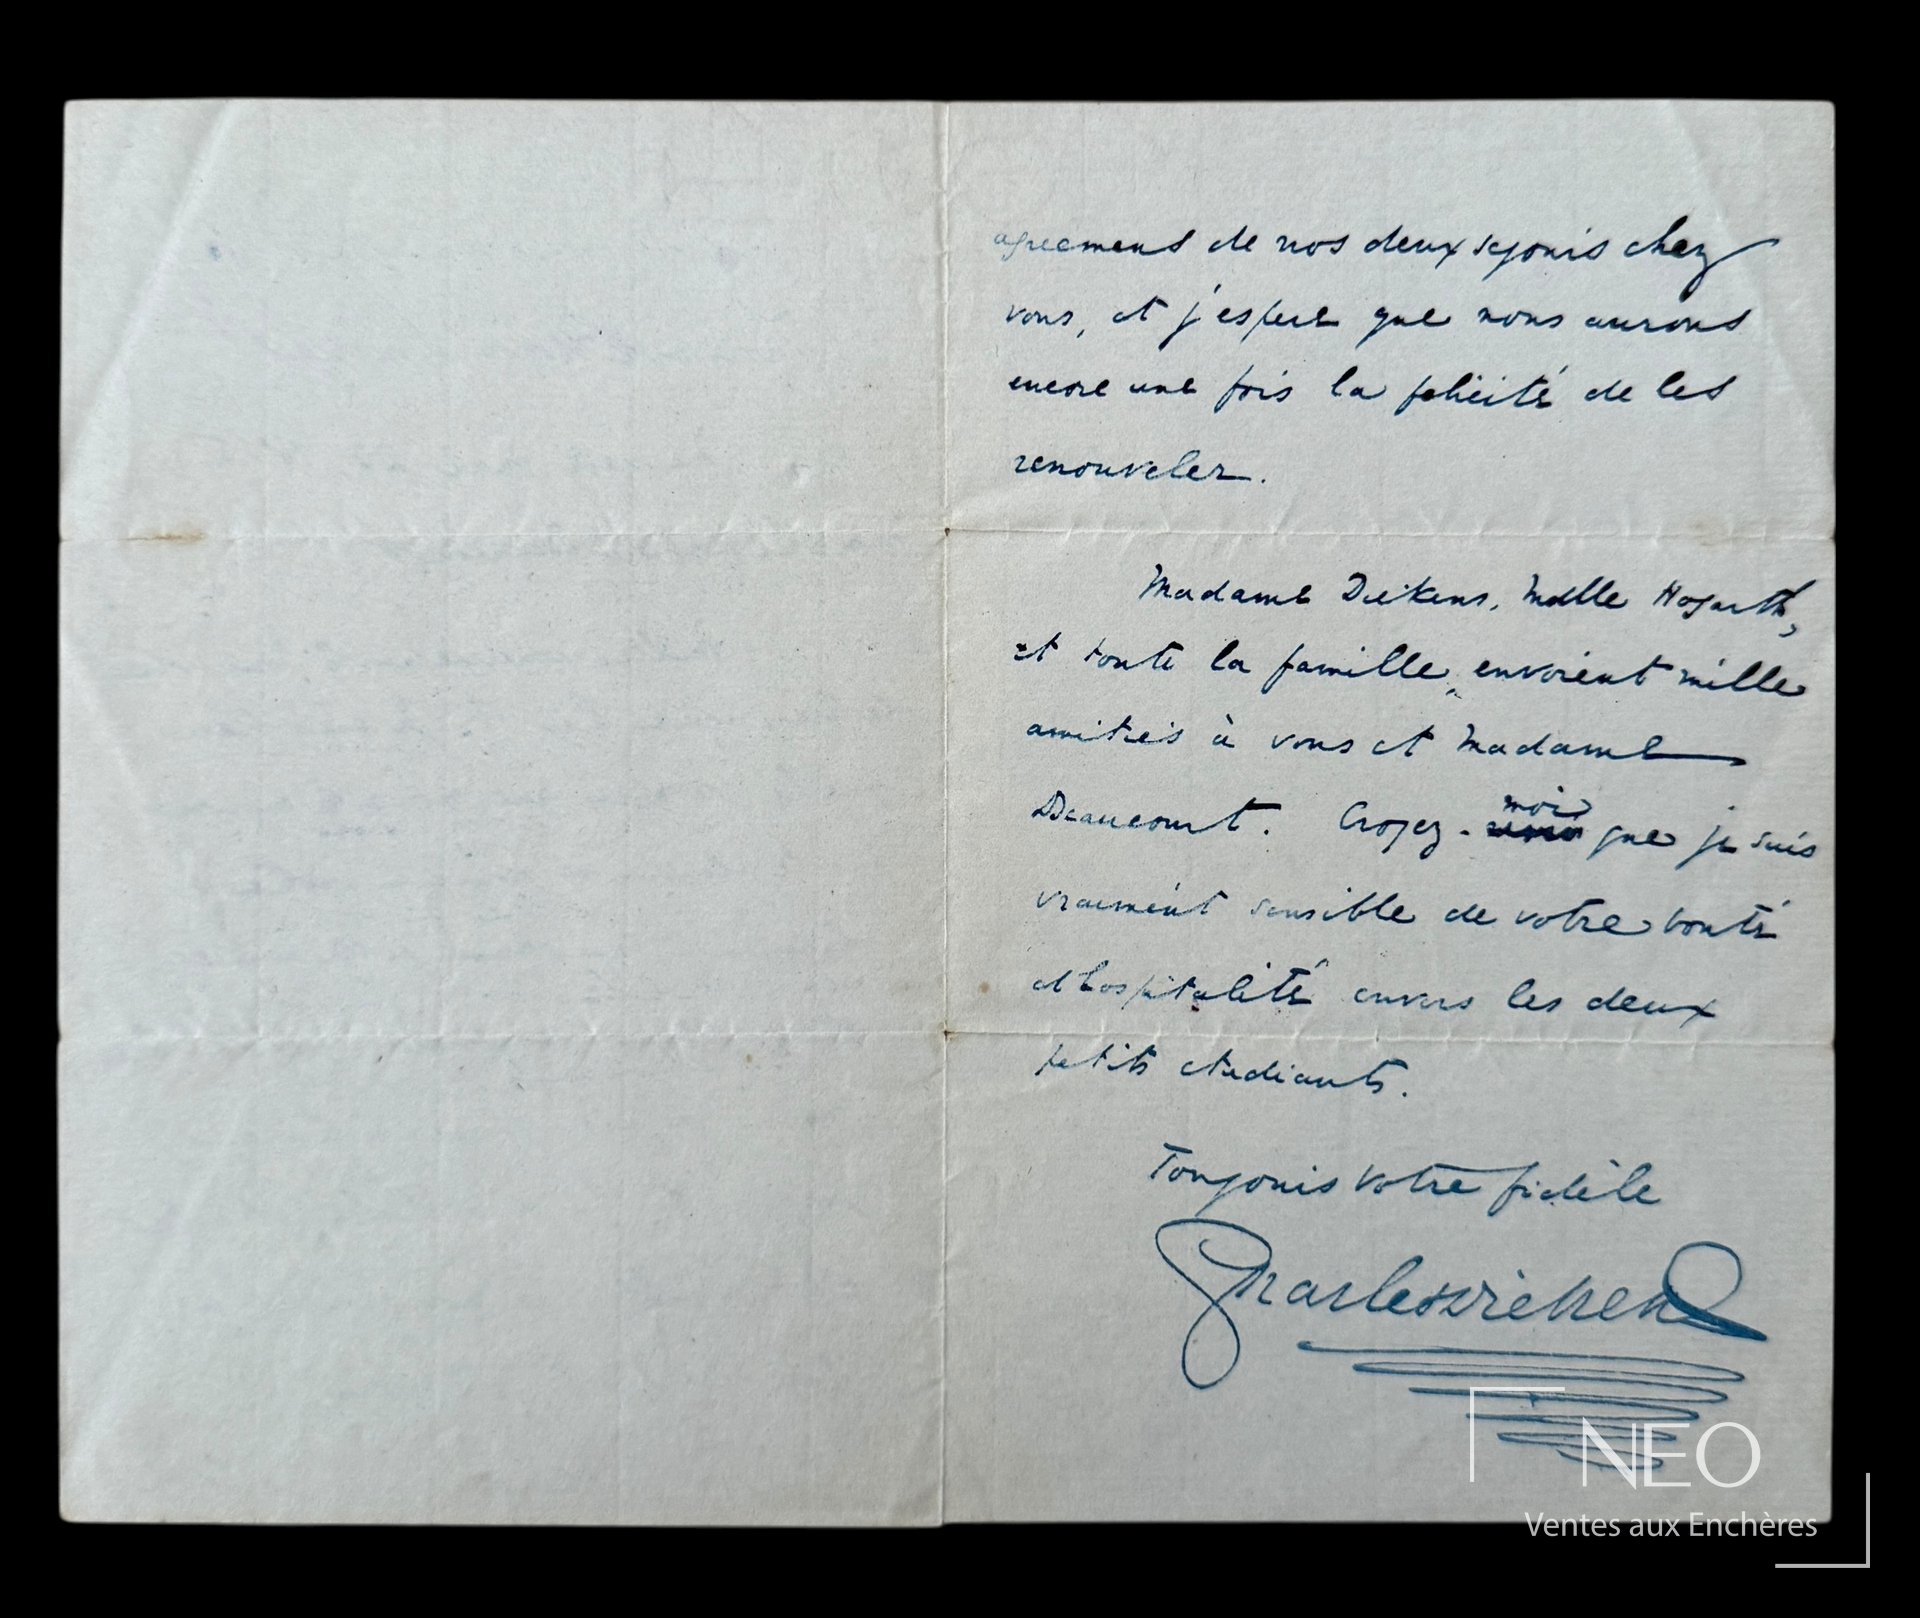 agreement de nos deux sejours chez
vous, et j'espere que nous aurons
encore une fois la felicité de les
renouveler.
Madame Dickens, Mdlle Hogarth,
et toute la famille, envoient mille
amitiés à vous et Madame
Beaucourt. Croyez-moi que je suis
vraiment sensible de votre bonté
et hospitalité envers les deux
petits etudiants.
Toujours votre fidèle
Charles Dickens
NEO
Ventes aux Enchères